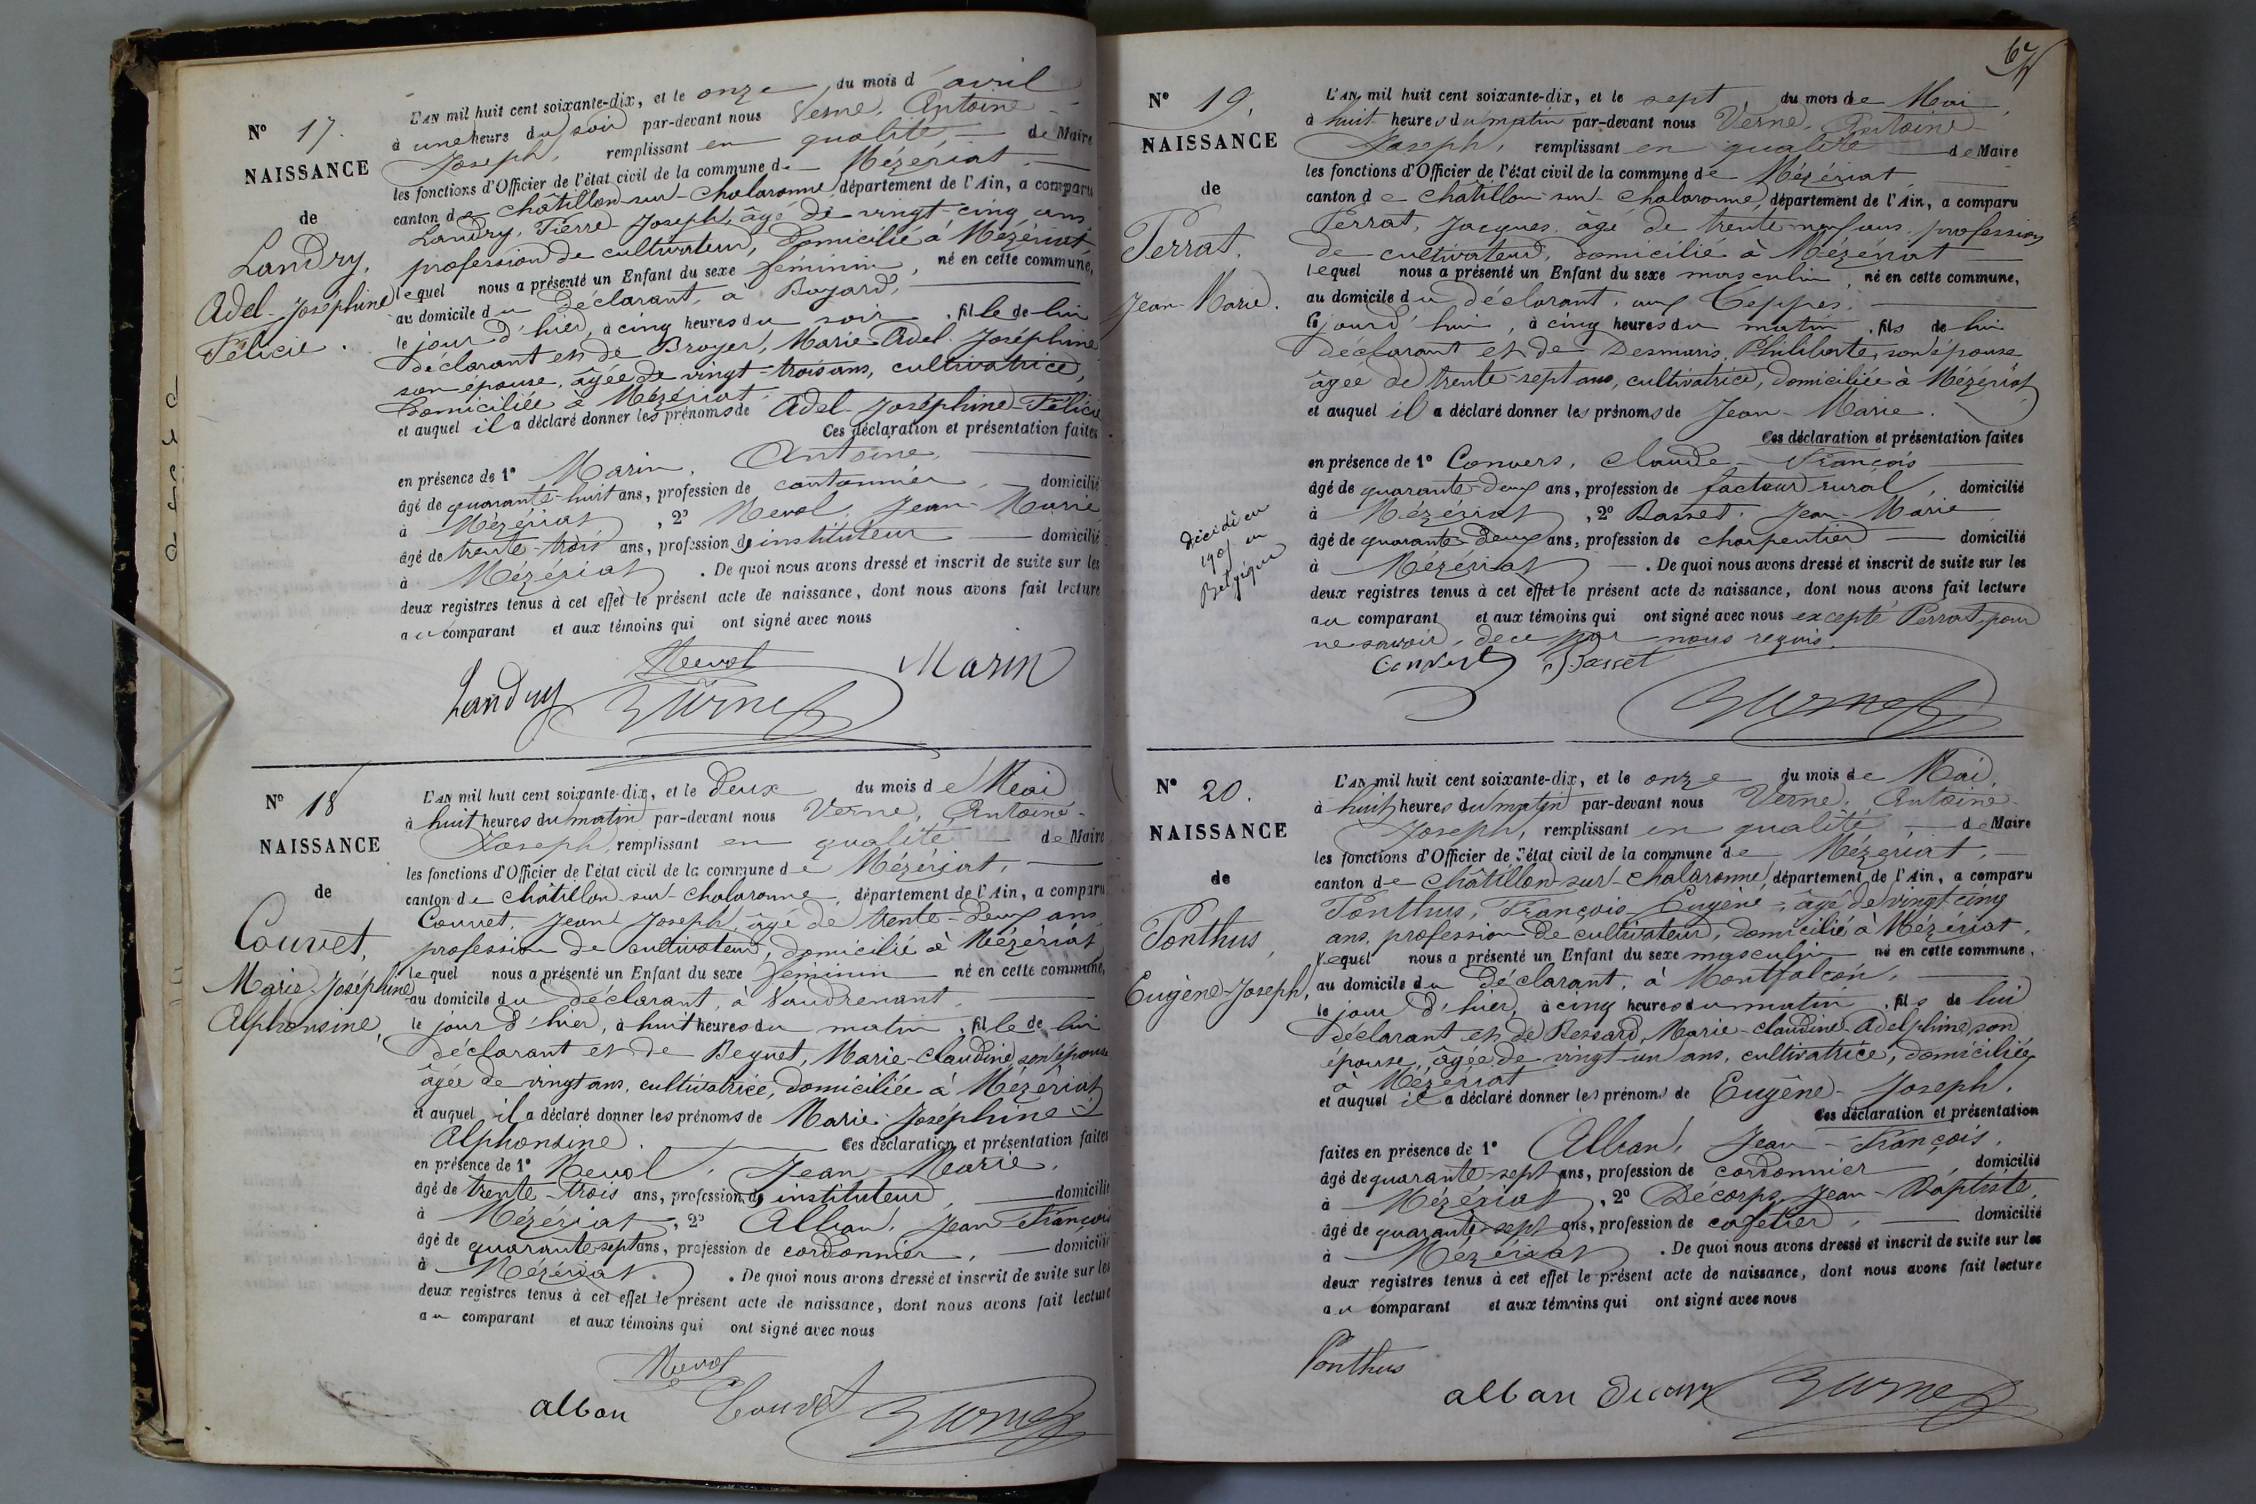 N° 17.
NAISSANCE
de
Landry,
Adel-Joséphine
Félicie.
L'AN mil huit cent soixante-dix, et le onze du mois d'avril
à une heure du soir par-devant nous Verne, Antoine-
Joseph, remplissant en qualité de Maire
les fonctions d'Officier de l'état civil de la commune de Mézériat,
canton de Châtillon-sur-Chalaronne, département de l'Ain, a comparu
Landry, Pierre Joseph, âgé de vingt-cinq ans,
profession de cultivateur, domicilié à Mézériat,
lequel nous a présenté un Enfant du sexe féminin, né en cette commune,
au domicile du déclarant, à Bayard,
le jour d'hier, à cinq heures du soir, fille de lui
déclarant et de Broyer, Marie Adel Joséphine
son épouse, âgée de vingt-trois ans, cultivatrice,
domiciliée à Mézériat
et auquel il a déclaré donner les prénoms de Adel-Joséphine-Félicie
Ces déclaration et présentation faites
en présence de 1° Marin, Antoine,
âgé de quarante-huit ans, profession de cantonnier, domicilié
à Mézériat, 2° Nevol, Jean-Marie
âgé de trente-trois ans, profession de instituteur domicilié
à Mézériat. De quoi nous avons dressé et inscrit de suite sur les
deux registres tenus à cet effet le présent acte de naissance, dont nous avons fait lecture
au comparant et aux témoins qui ont signé avec nous
Nevol
Marin
Landry
Verne
N° 18
NAISSANCE
de
Couvet,
Marie-Joséphine
Alphonsine,
L'AN mil huit cent soixante-dix, et le deux du mois de Mai
à huit heures du matin par-devant nous Verne, Antoine-
Joseph, remplissant en qualité de Maire
les fonctions d'Officier de l'état civil de la commune de Mézériat,
canton de Châtillon-sur-Chalaronne, département de l'Ain, a comparu
Couvet, Jean Joseph, âgé de trente-deux ans,
profession de cultivateur, domicilié à Mézériat
lequel nous a présenté un Enfant du sexe féminin né en cette commune,
au domicile du déclarant, à Vaudrenant,
le jour d'hier, à huit heures du matin, fille de lui
déclarant et de Beguet, Marie-Claudine son épouse
âgée de vingt ans, cultivatrice, domiciliée à Mézériat
et auquel il a déclaré donner les prénoms de Marie-Joséphine
Alphonsine. Ces déclaration et présentation faites
en présence de 1° Nevol, Jean-Marie,
âgé de trente-trois ans, profession de instituteur, domicilié
à Mézériat, 2° Alban, Jean François
âgé de quarante-sept ans, profession de cordonnier, domicilié
à Mézériat. De quoi nous avons dressé et inscrit de suite sur les
deux registres tenus à cet effet le présent acte de naissance, dont nous avons fait lecture
au comparant et aux témoins qui ont signé avec nous
Nevol
alban Couvet Verne
N° 19,
NAISSANCE
de
Perrat,
Jean-Marie.
décédé en
1901 en
Belgique
L'AN mil huit cent soixante-dix, et le sept du mois de Mai,
à huit heures du matin par-devant nous Verne, Antoine-
Joseph, remplissant en qualité de Maire
les fonctions d'Officier de l'état civil de la commune de Mézériat
canton de Châtillon-sur-Chalaronne, département de l'Ain, a comparu
Perrat, Jacques, âgé de trente-neuf ans, profession
de cultivateur, domicilié à Mézériat
lequel nous a présenté un Enfant du sexe masculin, né en cette commune,
au domicile du déclarant, aux Teppes,
ce jourd'hui, à cinq heures du matin, fils de lui
déclarant et de Desmaris, Philiberte, son épouse
âgée de trente-sept ans, cultivatrice, domiciliée à Mézériat,
et auquel il a déclaré donner les prénoms de Jean-Marie.
Ces déclaration et présentation faites
en présence de 1° Convers, Claude-François
âgé de quarante-deux ans, profession de facteur rural, domicilié
à Mézériat, 2° Basset, Jean-Marie
âgé de quarante-deux ans, profession de charpentier domicilié
à Mézériat. De quoi nous avons dressé et inscrit de suite sur les
deux registres tenus à cet effet le présent acte de naissance, dont nous avons fait lecture
au comparant et aux témoins qui ont signé avec nous excepté Perrat, pour
ne savoir, de ce par nous requis.
Convers Basset
Verne
N° 20.
NAISSANCE
de
Ponthus,
Eugène-Joseph,
L'AN mil huit cent soixante-dix, et le onze du mois de Mai,
à huit heures du matin par-devant nous Verne, Antoine-
Joseph, remplissant en qualité de Maire
les fonctions d'Officier de l'état civil de la commune de Mézériat,
canton de Châtillon-sur-Chalaronne, département de l'Ain, a comparu
Ponthus, François-Eugène, âgé de vingt-cinq
ans, profession de cultivateur, domicilié à Mézériat,
lequel nous a présenté un Enfant du sexe masculin né en cette commune,
au domicile du déclarant, à Montfalcon,
le jour d'hier, à cinq heures du matin, fils de lui
déclarant et de Bessard, Marie-Claudine-Adelphine, son
épouse, âgée de vingt-un ans, cultivatrice, domiciliée
à Mézériat
et auquel il a déclaré donner les prénoms de Eugène-Joseph.
Ces déclaration et présentation
faites en présence de 1° Alban, Jean-François,
âgé de quarante-sept ans, profession de cordonnier domicilié
à Mézériat, 2° Décorps, Jean-Baptiste,
âgé de quarante-sept ans, profession de cafetier, domicilié
à Mézériat. De quoi nous avons dressé et inscrit de suite sur les
deux registres tenus à cet effet le présent acte de naissance, dont nous avons fait lecture
au comparant et aux témoins qui ont signé avec nous
Ponthus
alban Decorps Verne